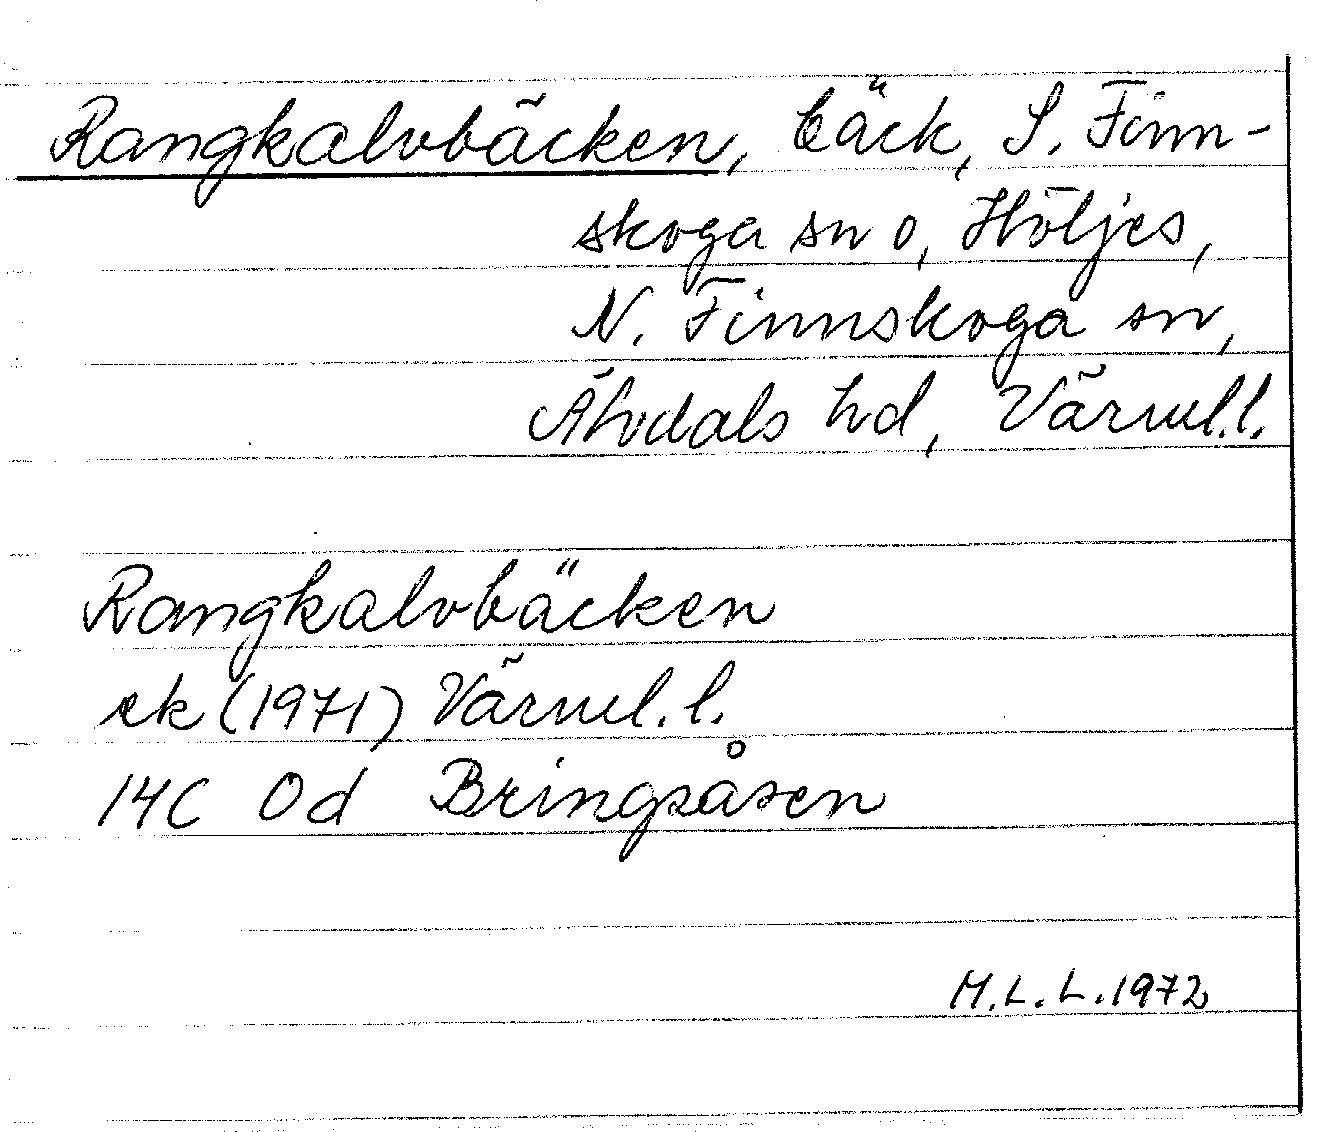 Rangkalvbäcken, bäck, S. Finn-
skoga sn o, Höljes,
N. Finnskoga sn,
Älvdals hd, Värml.l.
Rangkalvbäcken
ek (1971) Värml.l.
14C 0d Bringsåsen
M.L.L.1972